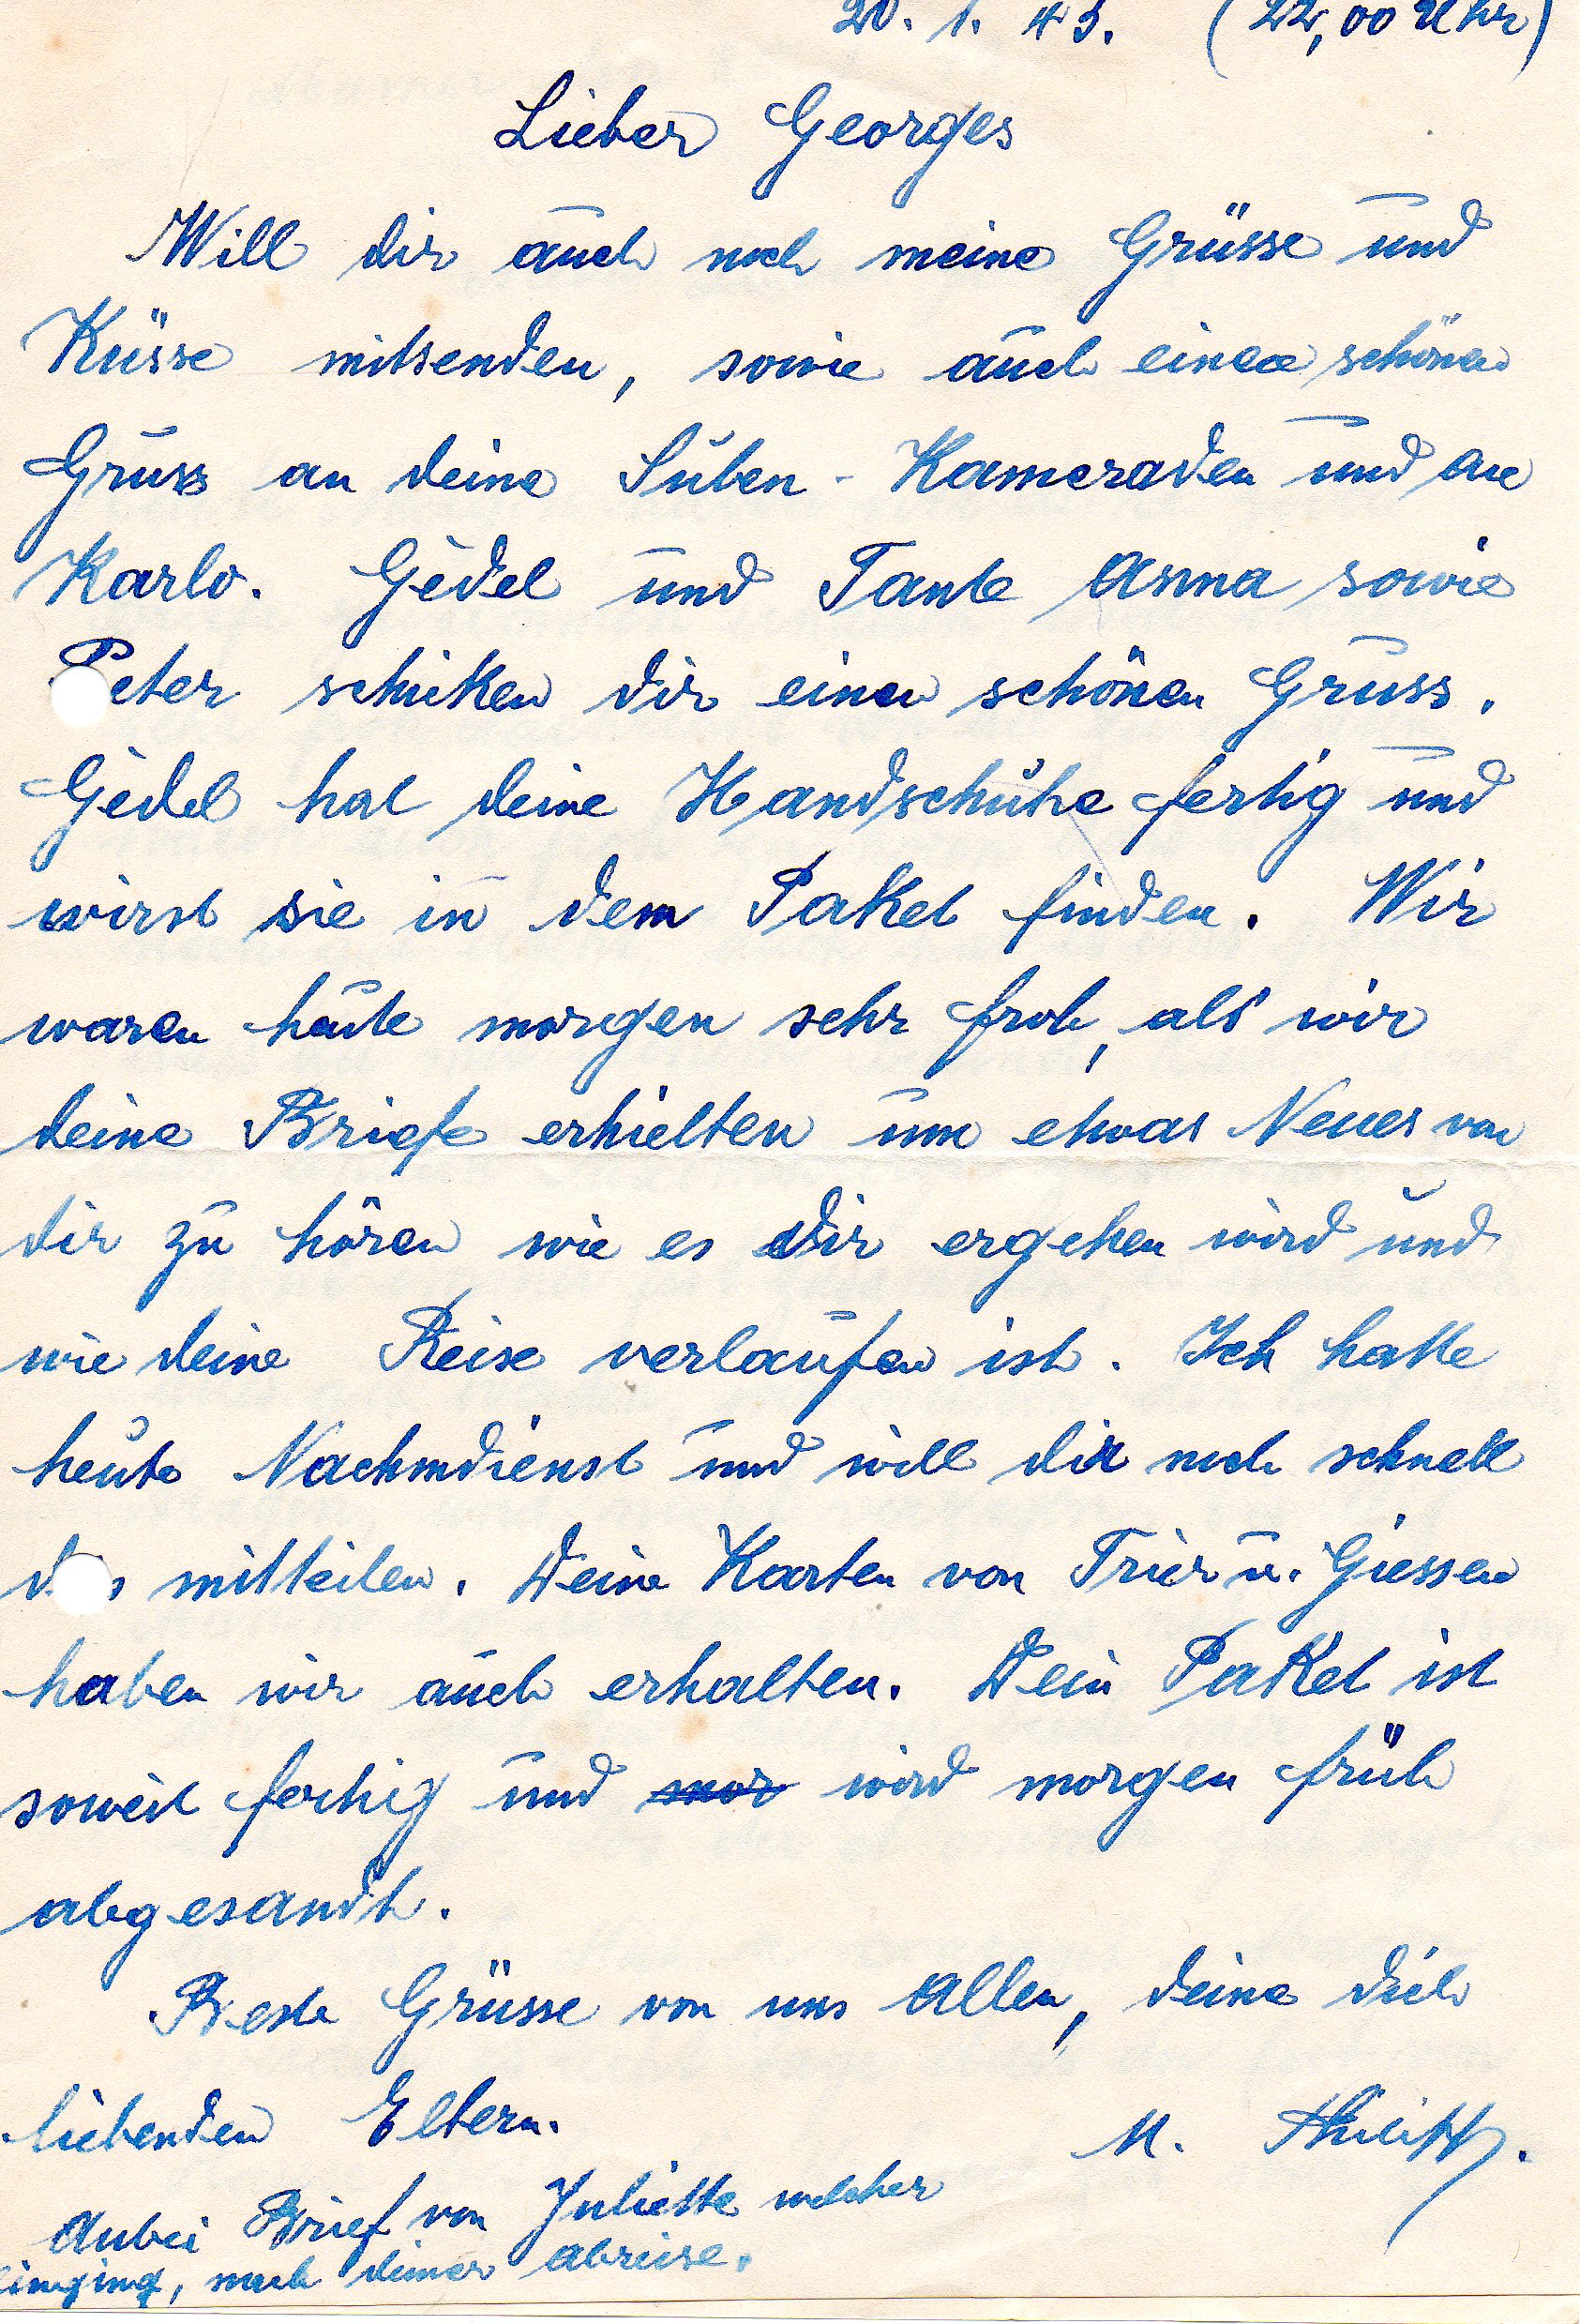 20. 1. 43. (22,00 Uhr)
Lieber Georges
Will dir auch noch meine Grüsse und
Küsse mitsenden, sowie auch einen schönen
Gruss an deine Stuben-Kameraden und an
Karlo. Gédel und Tante Anna sowie
Peter schiken dir einen schönen Gruss.
Gédel hat deine Handschuhe fertig und
wirst sie in dem Paket finden. Wir
waren heute morgen sehr froh, als wir
deine Briefe erhielten um etwas Neues von
dir zu hören wie es dir ergehen wird und
wie deine Reise verlaufen ist. Ich hatte
heute Nachmdienst und will dir noch schnell
mitteilen. Deine Karten von Trier u. Giessen
haben wir auch erhalten. Dein Paket ist
soweit fertig und wird morgen früh
abgesandt.
Beste Grüsse von uns Allen, deine dich
liebenden Eltern.
M.
Anbei Brief von Juliette welcher
einging, nach deiner Abreise.